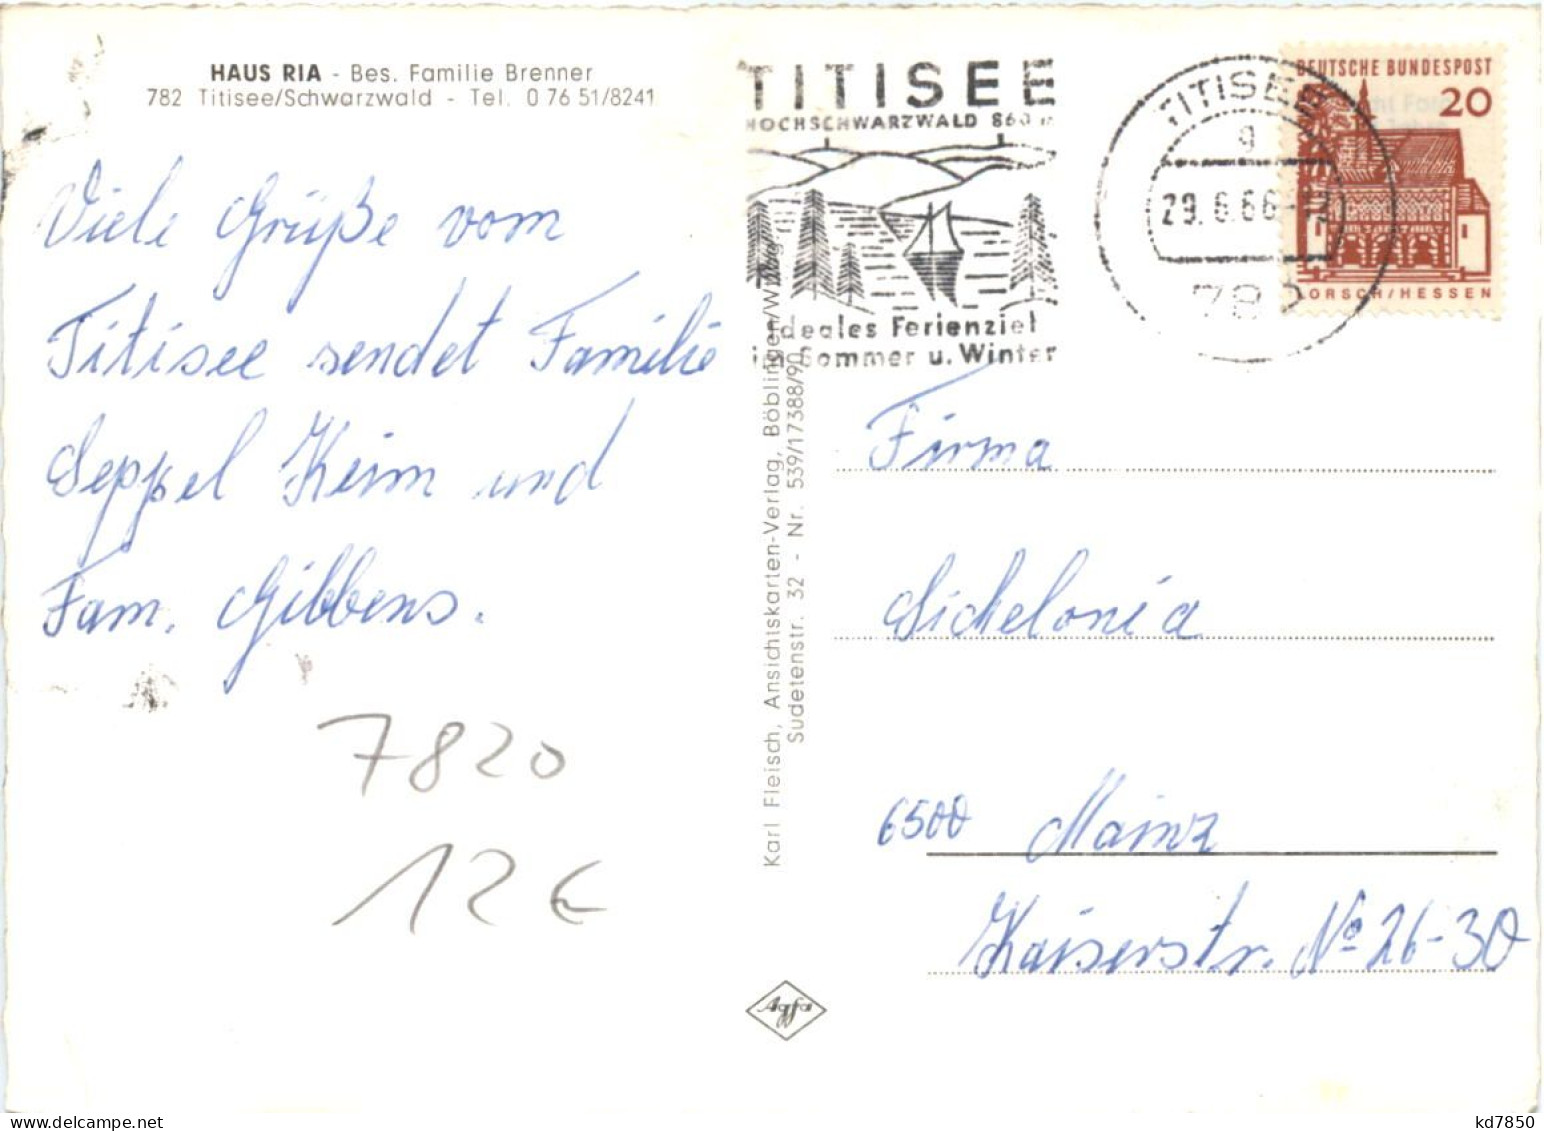 HAUS RIA - Bes. Familie Brenner
782 Titisee/Schwarzwald - Tel. 0 76 51/8241
Viele Grüße vom
Titisee sendet Familie
Seppel Keim und
Fam. Gibbens.
7820
12 €
Karl Fleisch, Ansichtskarten-Verlag, Böblingen/Württ.
Sudetenstr. 32 - Nr. 539/17388/90
TITISEE
HOCHSCHWARZWALD 860 m
Ideales Ferienziel
im Sommer u. Winter
TITISEE
g
29.6.66
782
DEUTSCHE BUNDESPOST
20
LORSCH/HESSEN
Firma
Sichelonia
6500 Mainz
Kaiserstr. No 26-30
Agfa
kd7850